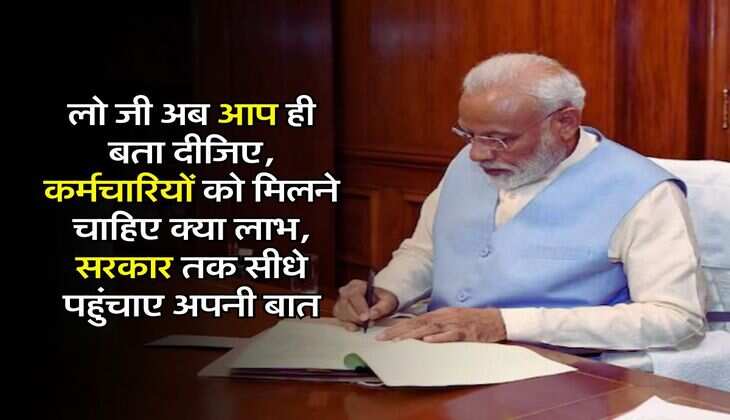 लो जी अब आप ही
बता दीजिए,
कर्मचारियों को मिलने
चाहिए क्या लाभ,
सरकार तक सीधे
पहुंचाए अपनी बात